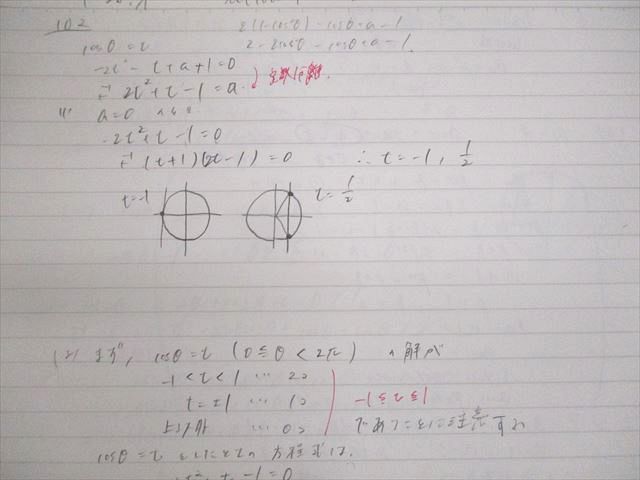 102
2(1-cos²θ) - cosθ = a - 1
cosθ = t
2 - 2cos²θ - cosθ = a - 1
-2t² - t + a + 1 = 0
⇔ 2t² + t - 1 = a. 定数分離.
(1) a = 0 のとき
2t² + t - 1 = 0
⇔ (t+1)(2t-1) = 0 ∴ t = -1, 1/2
t = -1
t = 1/2
(2) まず, cosθ = t (0 ≦ θ < 2π) の解が
-1 < t < 1 … 2コ
t = ±1 … 1コ
-1 ≦ t ≦ 1
上記以外 … 0コ
であることに注意する
cosθ = t としたときの方程式は,
2t² + t - 1 = 0